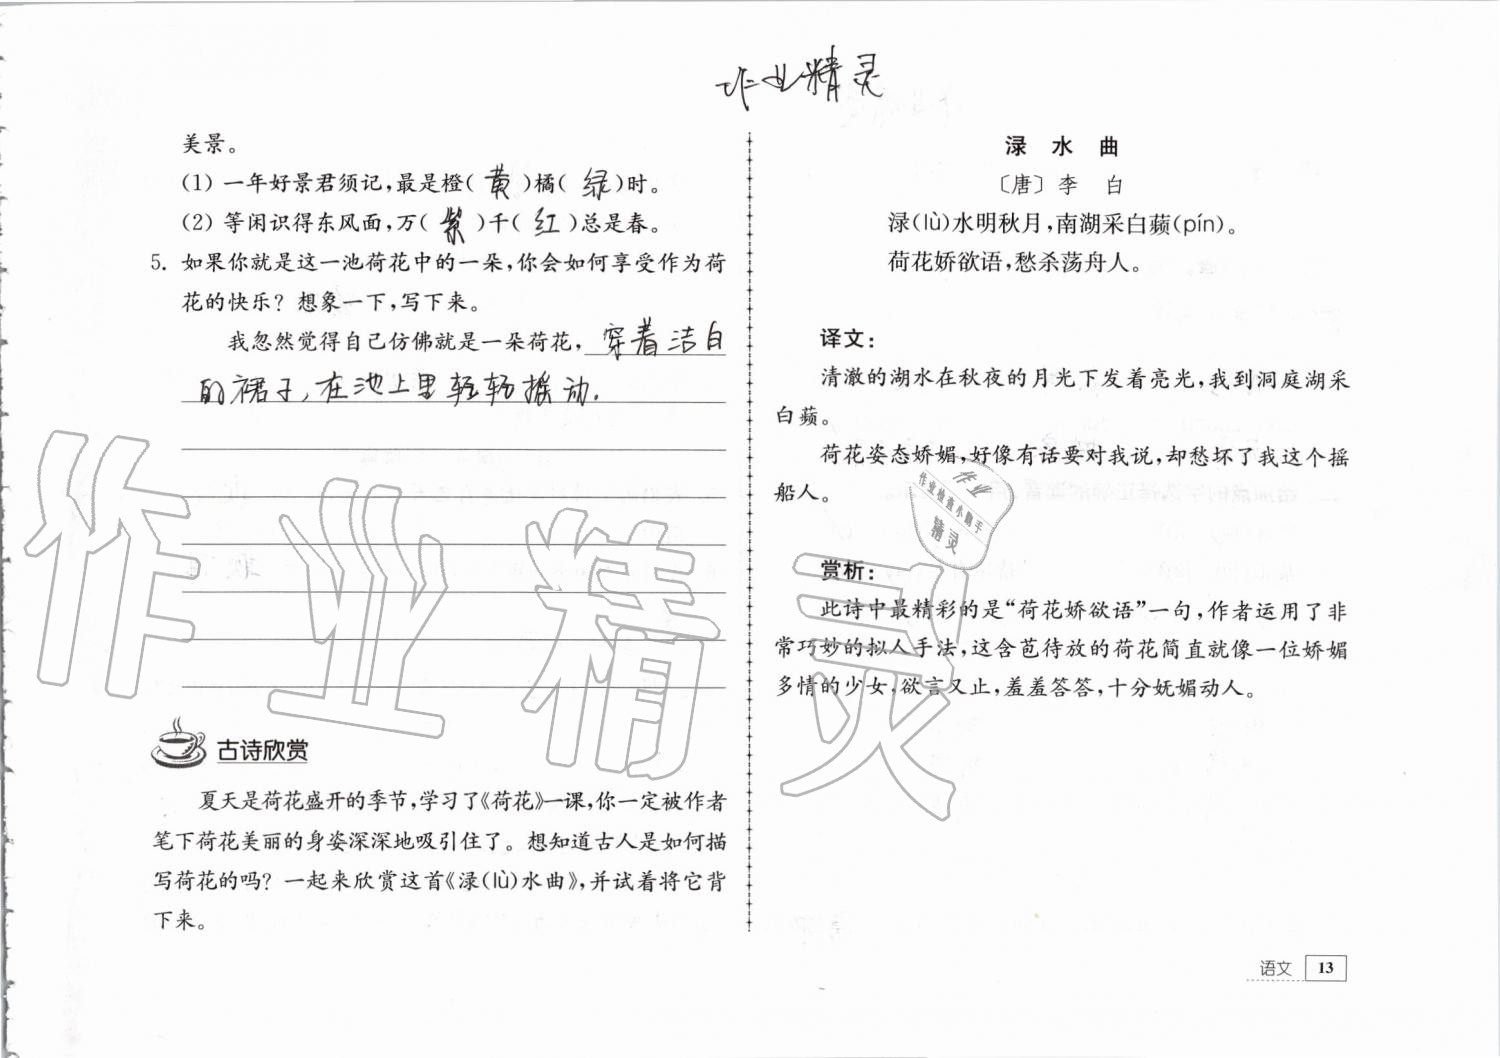 作业精灵
美景。
(1) 一年好景君须记,最是橙( 黄 )橘( 绿 )时。
(2) 等闲识得东风面,万( 紫 )千( 红 )总是春。
5. 如果你就是这一池荷花中的一朵,你会如何享受作为荷
花的快乐？想象一下,写下来。
我忽然觉得自己仿佛就是一朵荷花, 穿着洁白
的裙子,在池上里轻轻摇动.
古诗欣赏
夏天是荷花盛开的季节,学习了《荷花》一课,你一定被作者
笔下荷花美丽的身姿深深地吸引住了。想知道古人是如何描
写荷花的吗？一起来欣赏这首《渌(lù)水曲》,并试着将它背
下来。
渌 水 曲
〔唐〕李 白
渌(lù)水明秋月,南湖采白蘋(pín)。
荷花娇欲语,愁杀荡舟人。
译文:
清澈的湖水在秋夜的月光下发着亮光,我到洞庭湖采
白蘋。
荷花姿态娇媚,好像有话要对我说,却愁坏了我这个摇
船人。
赏析:
此诗中最精彩的是“荷花娇欲语”一句,作者运用了非
常巧妙的拟人手法,这含苞待放的荷花简直就像一位娇媚
多情的少女,欲言又止,羞羞答答,十分妩媚动人。
作业精灵
作业
作业检查小助手
精灵
语文 13